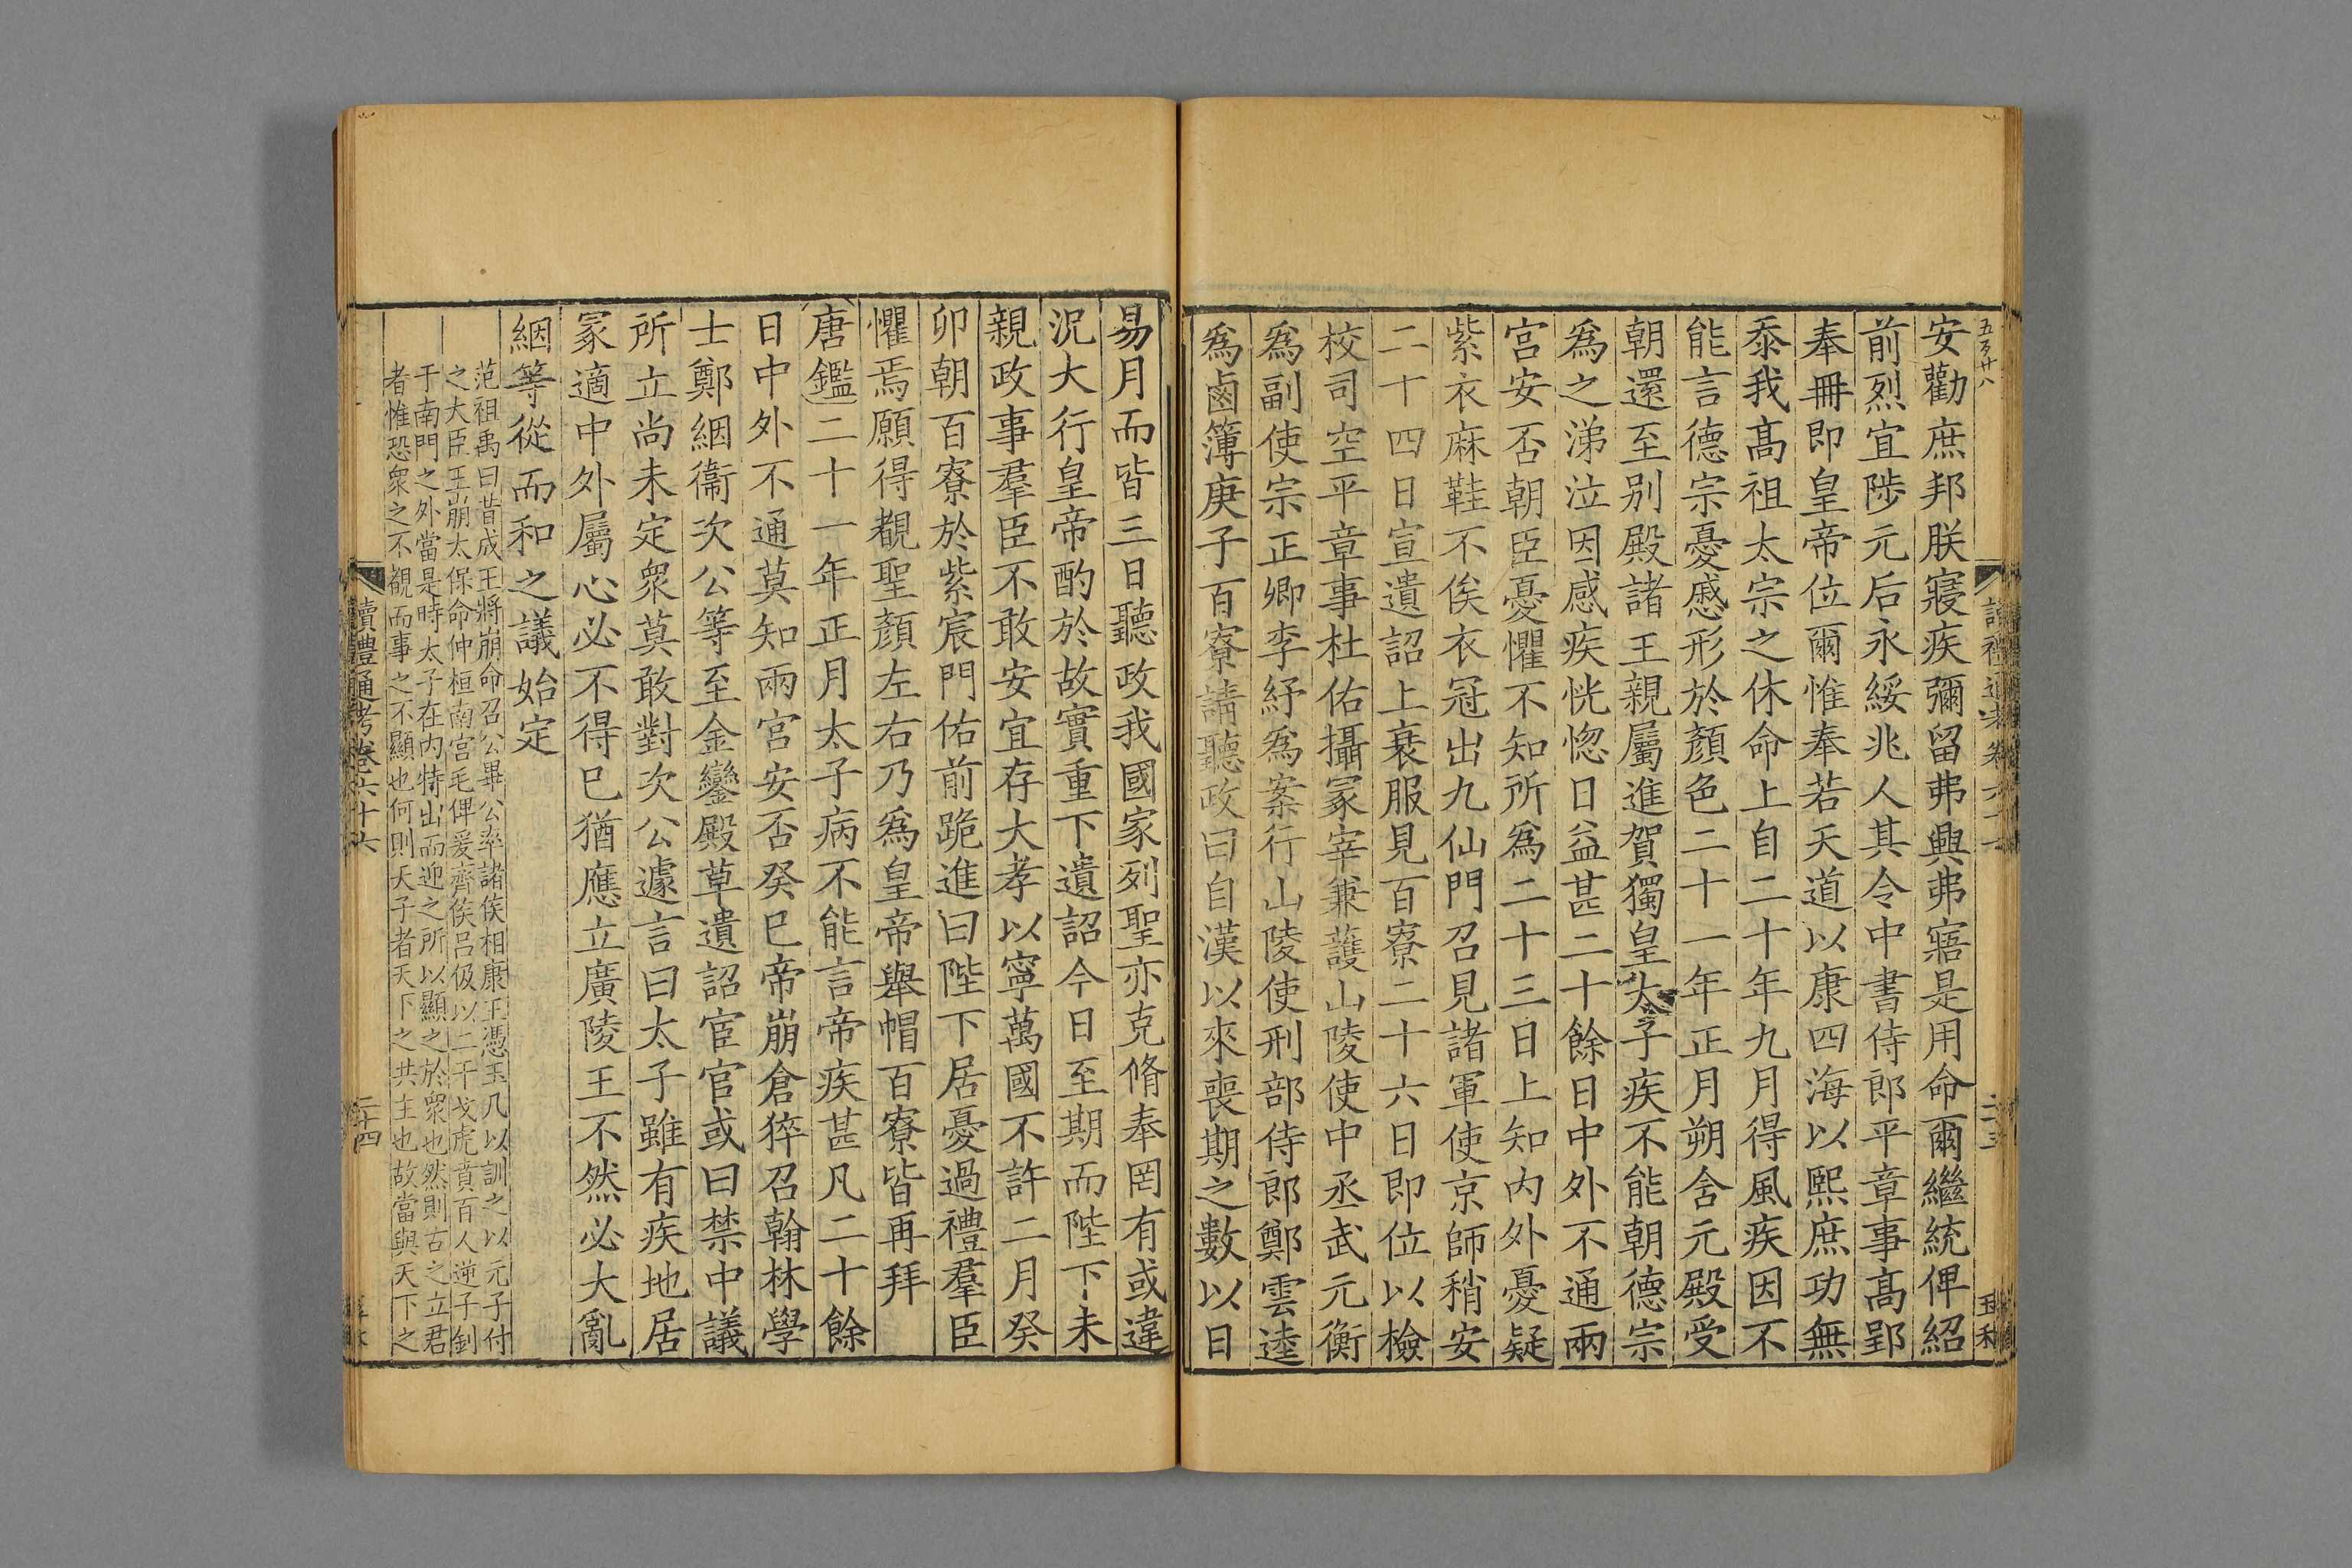 安勸庶邦朕寢疾彌留弗興弗寤是用命爾繼統俾紹
前烈宜陟元后永綏兆人其令中書侍郎平章事髙郢
奉冊即皇帝位爾惟奉若天道以康四海以熙庶功無
忝我髙祖太宗之休命上自二十年九月得風疾因不
能言德宗憂慼形於顏色二十一年正月朔含元殿受
朝還至别殿諸王親屬進賀獨皇太子疾不能朝德宗
爲之涕泣因感疾恍惚日益甚二十餘日中外不通兩
宫安否朝臣憂懼不知所爲二十三日上知内外憂疑
紫衣麻鞋不俟衣冠出九仙門召見諸軍使京師稍安
二十四日宣遺詔上衰服見百寮二十六日即位以檢
校司空平章事杜佑攝冢宰兼䕶山陵使中丞武元衡
爲副使宗正卿李紓爲案行山陵使刑部侍郎鄭雲逵
爲鹵簿庚子百寮請聽政曰自漢以來喪期之數以日
易月而皆三日聽政我國家列聖亦克脩奉罔有或違
況大行皇帝酌於故實重下遺詔今日至期而陛下未
親政事羣臣不敢安宜存大孝以寧萬國不許二月癸
卯朝百寮於紫宸門佑前跪進曰陛下居憂過禮羣臣
懼焉願得覩聖顏左右乃爲皇帝舉帽百寮皆再拜
唐鑑二十一年正月太子病不能言帝疾甚凡二十餘
日中外不通莫知兩宫安否癸巳帝崩倉猝召翰林學
士鄭絪衞次公等至金鑾殿草遺詔宦官或曰禁中議
所立尚未定衆莫敢對次公遽言曰太子雖有疾地居
冢適中外屬心必不得已猶應立廣陵王不然必大亂
絪等從而和之議始定
范祖禹曰昔成王將崩命召公畢公率諸侯相康王憑玉几以訓之以元子付
之大臣王崩太保命仲桓南宫毛俾爰齊侯吕伋以二干戈虎賁百人逆子釗
于南門之外當是時太子在内特出而迎之所以顯之於衆也然則古之立君
者惟恐衆之不覩而事之不顯也何則天子者天下之共主也故當與天下之
讀禮通考卷六十六
二十四